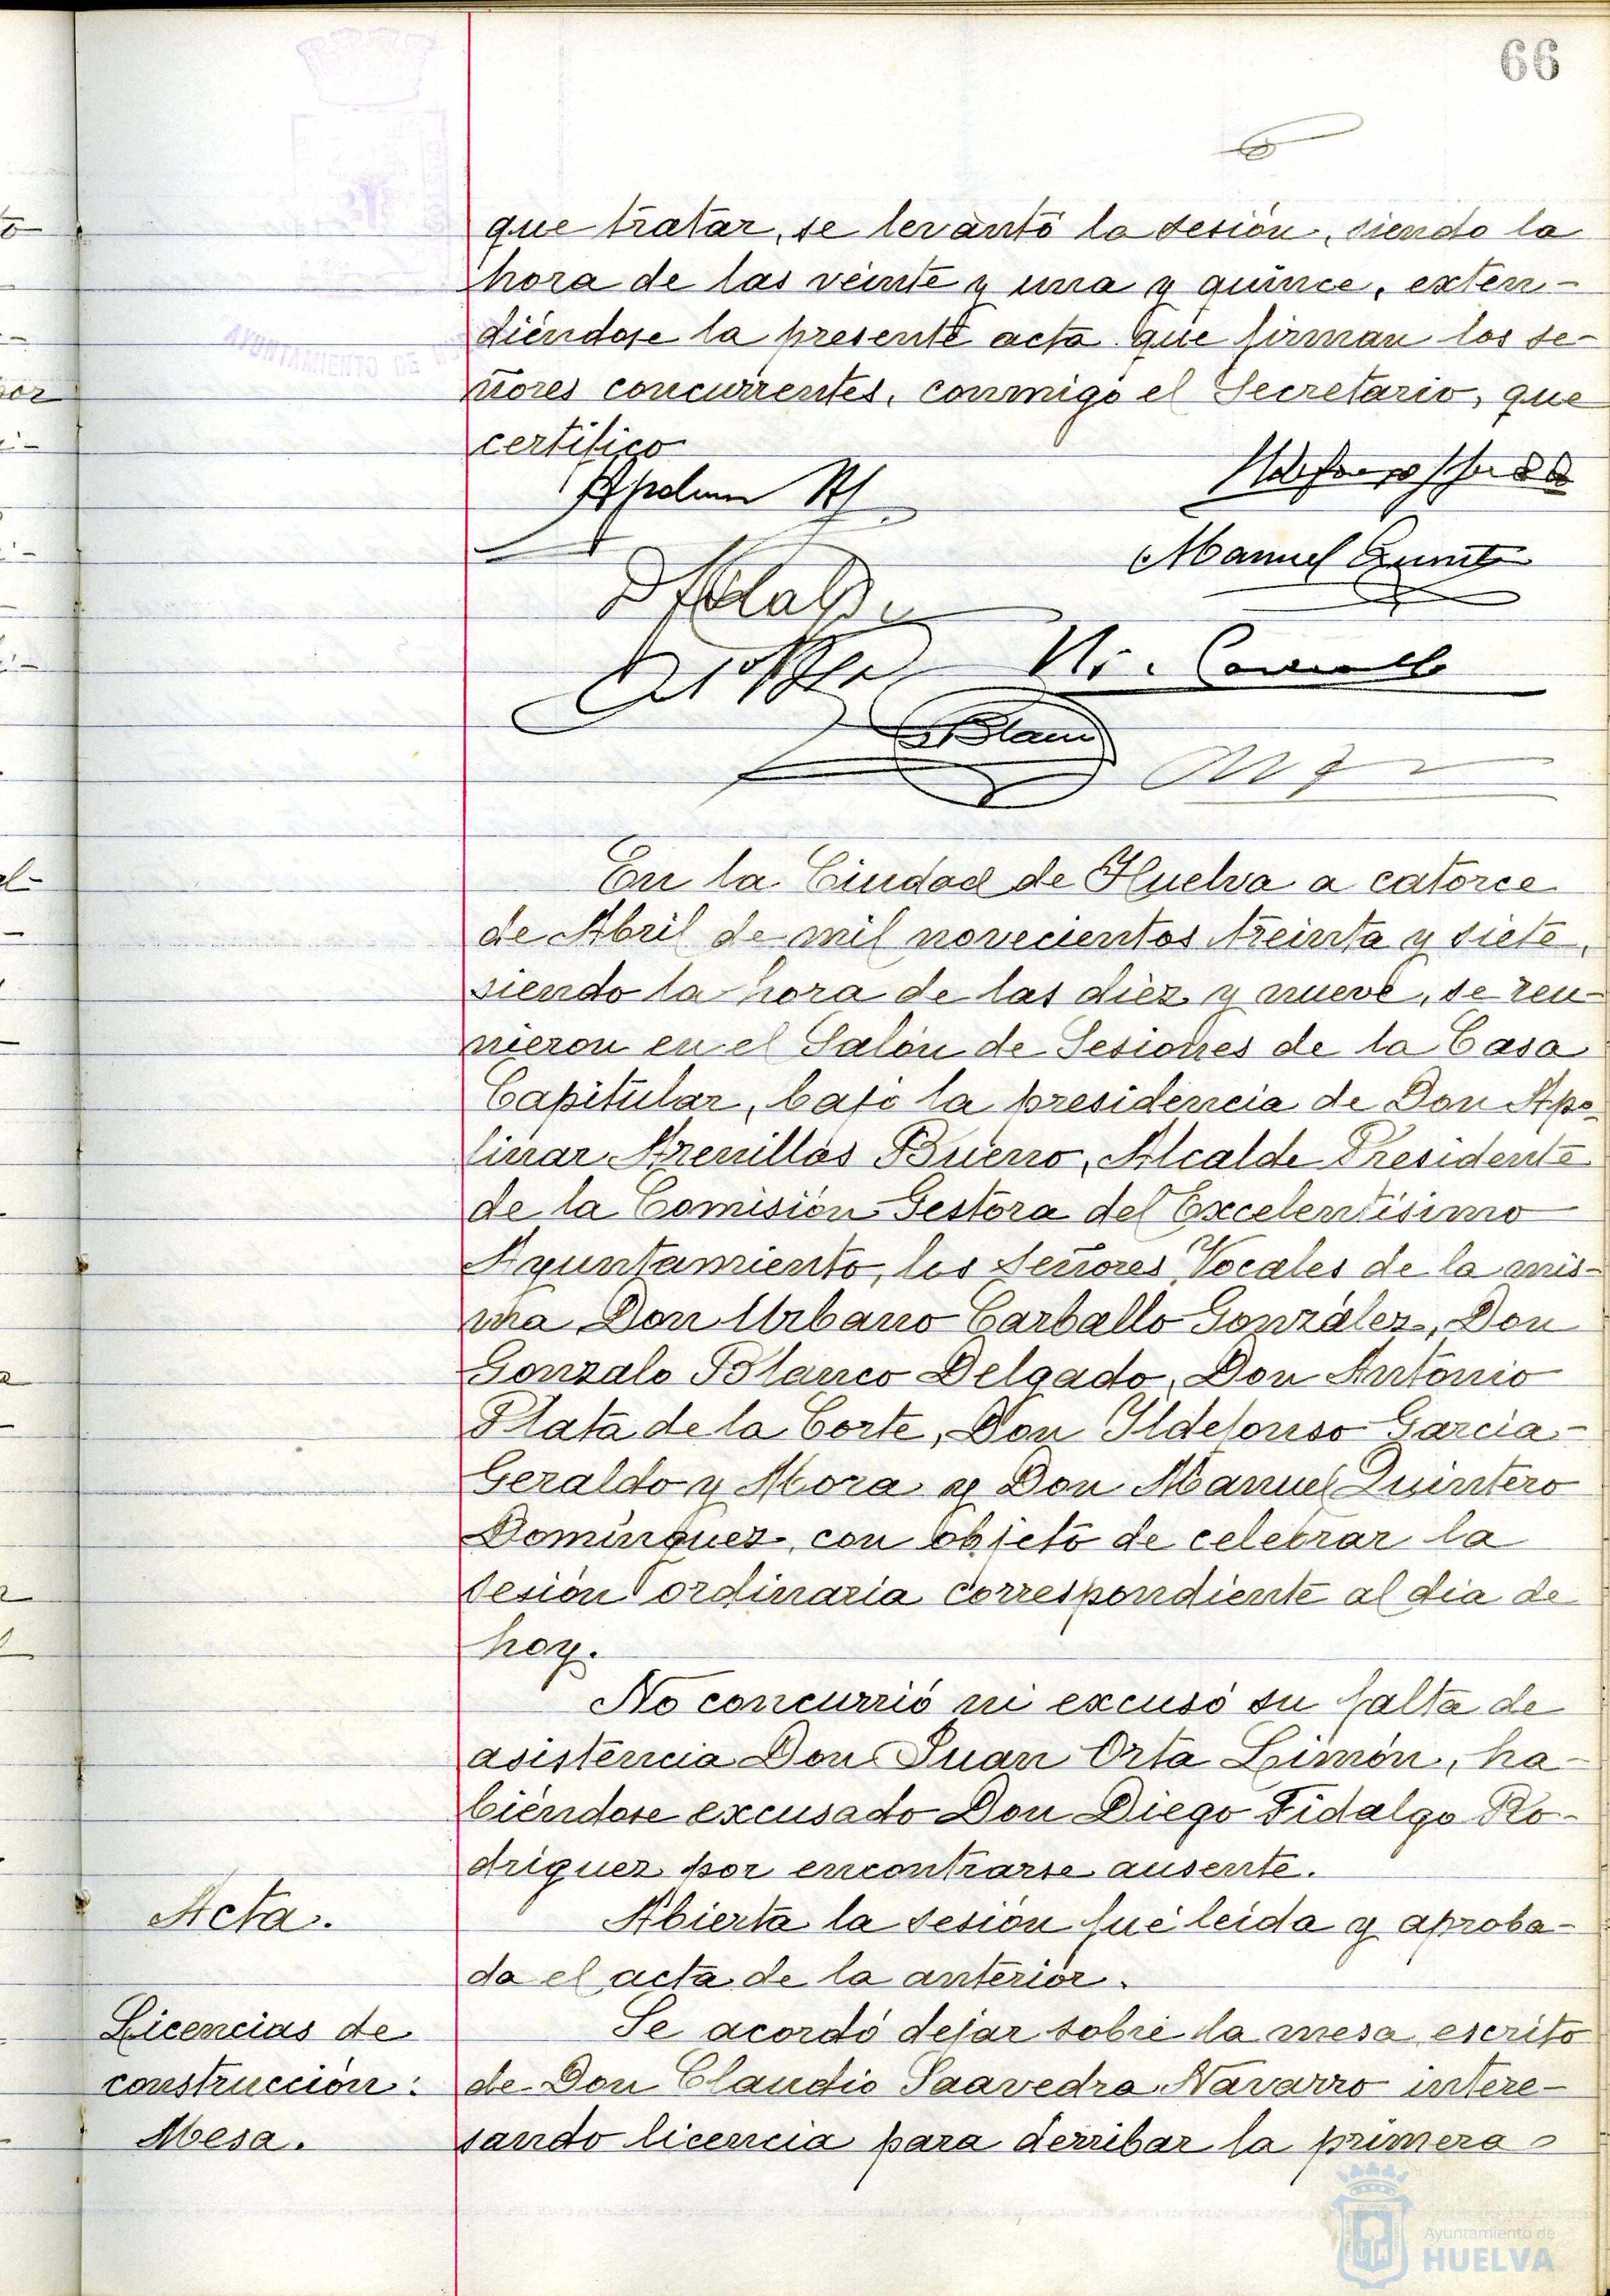 66
que tratar, se levantó la sesión, siendo la
hora de las veinte y una y quince, exten-
diéndose la presente acta que firman los se-
ñores concurrentes, conmigo el Secretario, que
certifico
Manuel Quintero
Blanco
En la Ciudad de Huelva a catorce
de Abril de mil novecientos treinta y siete,
siendo la hora de las diez y nueve, se reu-
nieron en el Salón de Sesiones de la Casa
Capitular, bajo la presidencia de Don Apo-
linar Arenillas Bueno, Alcalde Presidente
de la Comisión Gestora del Excelentísimo
Ayuntamiento, los Señores Vocales de la mis-
ma Don Urbano Carballo González, Don
Gonzalo Blanco Delgado, Don Antonio
Plata de la Corte, Don Ildefonso García-
Geraldo y Mora y Don Manuel Quintero
Domínguez, con objeto de celebrar la
sesión ordinaria correspondiente al dia de
hoy.
No concurrió ni excusó su falta de
asistencia Don Juan Orta Limón, ha-
biéndose excusado Don Diego Fidalgo Ro-
driguez por encontrarse ausente.
Acta.
Abierta la sesión fué leida y aproba-
da el acta de la anterior.
Licencias de
construcción:
Mesa.
Se acordó dejar sobre la mesa escrito
de Don Claudio Saavedra Navarro intere-
sando licencia para derribar la primera
AYUNTAMIENTO DE
Ayuntamiento de
HUELVA